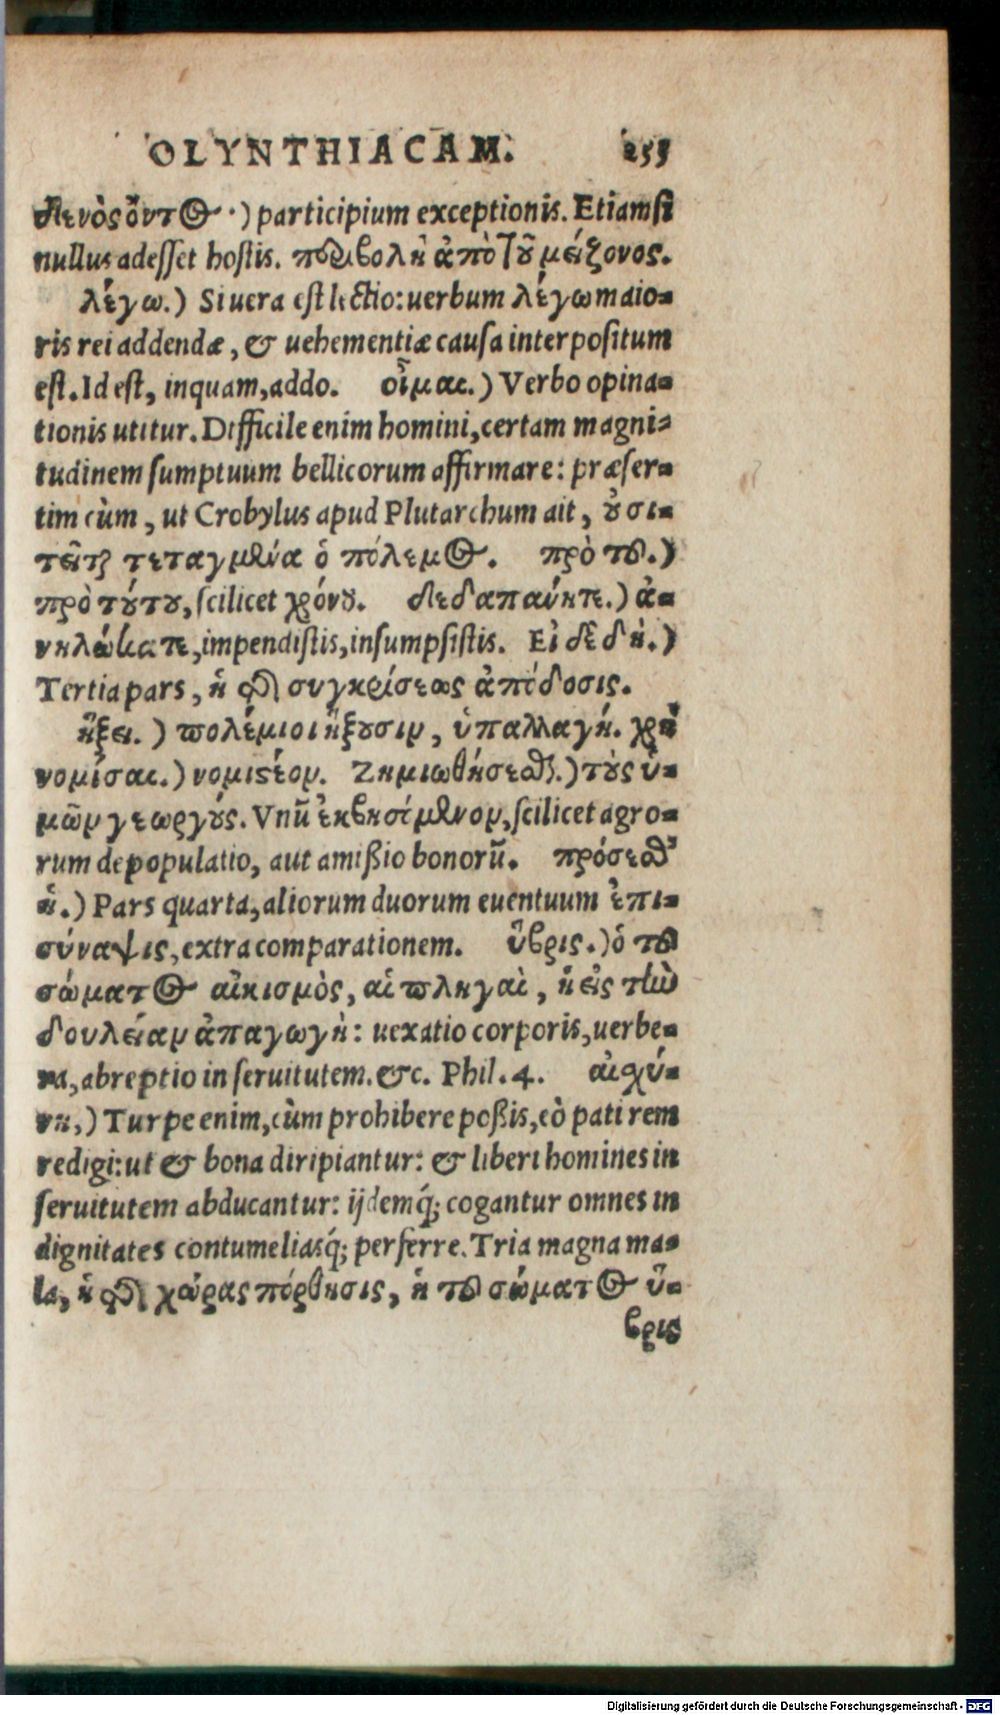 OLYNTHIACAM. 255
δενὸς ὄντος.) participium exceptionis. Etiamsi
nullus adesset hostis. περιβολὴ ἀπὸ τοῦ μείζονος.
λέγω.) Si uera est lectio: uerbum λέγω maio-
ris rei addendæ, & uehementiæ causa interpositum
est. Id est, inquam, addo. οἶμαι.) Verbo opina-
tionis utitur. Difficile enim homini, certam magni-
tudinem sumptuum bellicorum affirmare: præser-
tim cùm, ut Crobylus apud Plutarchum ait, ȣ σι-
τεῖται τεταγμένα ὁ πόλεμος. πρὸ τοῦ.)
πρὸ τούτου, scilicet χρόνου. δεδαπάνηκτε.) ἀ-
νηλώκατε, impendistis, insumpsistis. Εἰ δὲ δή.)
Tertia pars, ἡ τῆς συγκρίσεως ἀπόδοσις.
ἥξει.) πολέμιοι ἥξουσιν, ὑπαλλαγή. χρὴ
νομίσαι.) νομιστέον. Ζημιωθήσεσθαι.) τοὺς ὑ-
μῶν γεωργούς. Vnū ἐκβησόμενον, scilicet agro-
rum depopulatio, aut amißio bonorū. πρόσεσθ'
ἡ.) Pars quarta, aliorum duorum euentuum ἐπι-
σύναψις, extra comparationem. ὕβρις.) ὁ τοῦ
σώματος αἰκισμὸς, αἱ πληγαὶ, ἡ εἰς τὴν
δουλείαν ἀπαγωγὴ: uexatio corporis, uerbe-
ra, abreptio in seruitutem. &c. Phil. 4. αἰσχύ-
νη,) Turpe enim, cùm prohibere poßis, eò pati rem
redigi: ut & bona diripiantur: & liberi homines in
seruitutem abducantur: ijdemq́; cogantur omnes in
dignitates contumeliasq́; perferre. Tria magna ma-
la, ἡ τῆς χώρας πόρθησις, ἡ τοῦ σώματος ὕ-
βρις
Digitalisierung gefördert durch die Deutsche Forschungsgemeinschaft - DFG